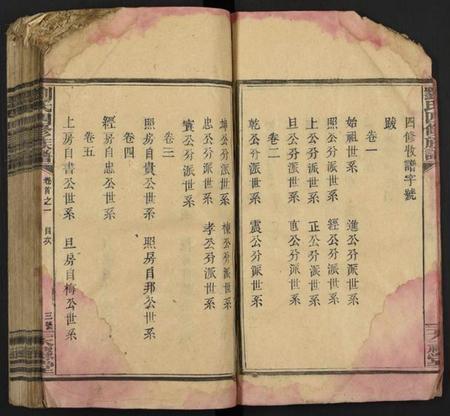 劉氏四修族譜
天祿堂
四修牧譜字號
跋
卷一
始祖世系 進公分派世系
照公分派世系 經公分派世系
上公分派世系 正公分派世系
旦公分派世系 直公分派世系
卷二
乾公分派世系 震公分派世系
坤公分派世系 棟公分派世系
忠公分派世系 孝公分派世系
賓公分派世系
卷三
照房自貴公世系 照房自邦公世系
卷四
經房自忠公世系
卷五
上房自書公世系 旦房自梅公世系
劉氏四修族譜
卷首之一 目次
三號 天祿堂